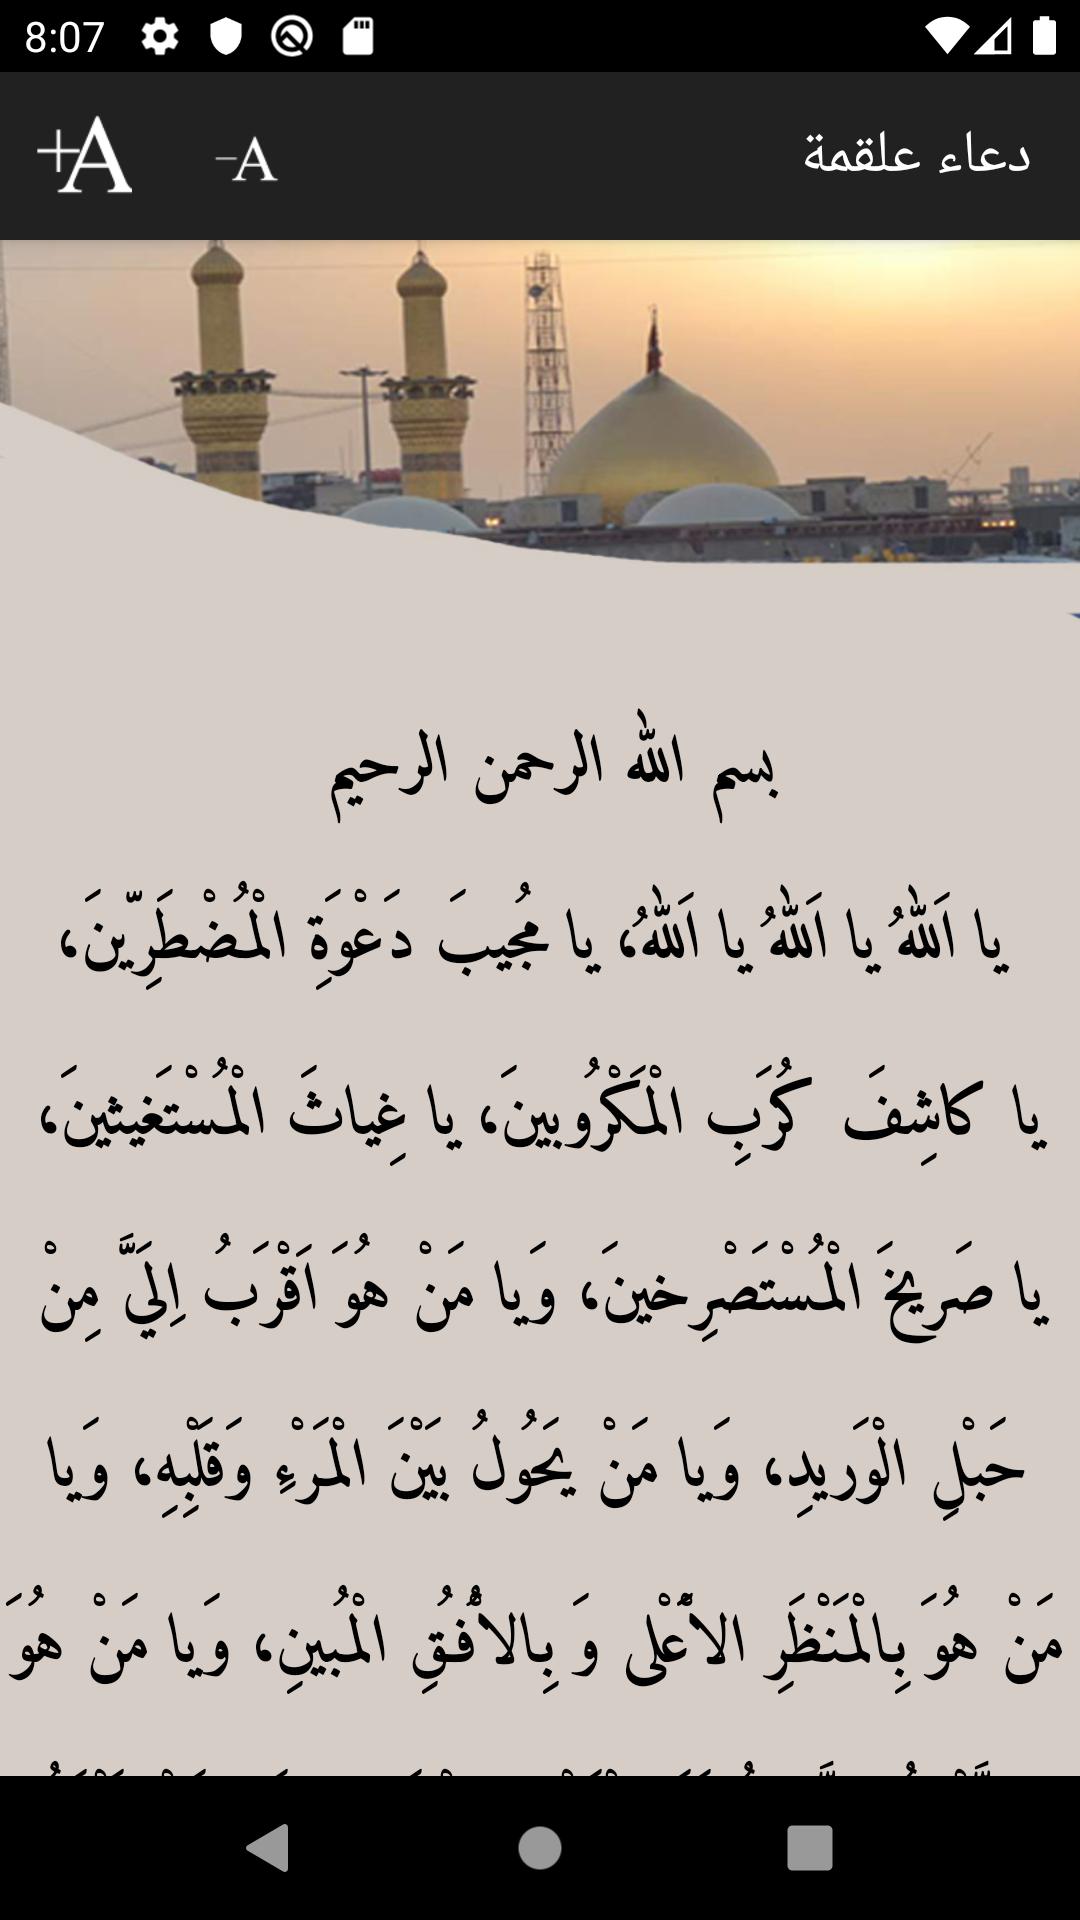 8:07
+A
-A
دعاء علقمة
بسم الله الرحمن الرحيم
يا اَللهُ يا اَللهُ يا اَللهُ، يا مُجيبَ دَعْوَةِ الْمُضْطَرّينَ،
يا كاشِفَ كُرَبِ الْمَكْرُوبينَ، يا غِياثَ الْمُسْتَغيثينَ،
يا صَريخَ الْمُسْتَصْرِخينَ، وَيا مَنْ هُوَ اَقْرَبُ اِلَيَّ مِنْ
حَبْلِ الْوَريدِ، وَيا مَنْ يَحُولُ بَيْنَ الْمَرْءِ وَقَلْبِهِ، وَيا
مَنْ هُوَ بِالْمَنْظَرِ الاَْعْلى وَ بِالاُْفُقِ الْمُبينِ، وَيا مَنْ هُوَ